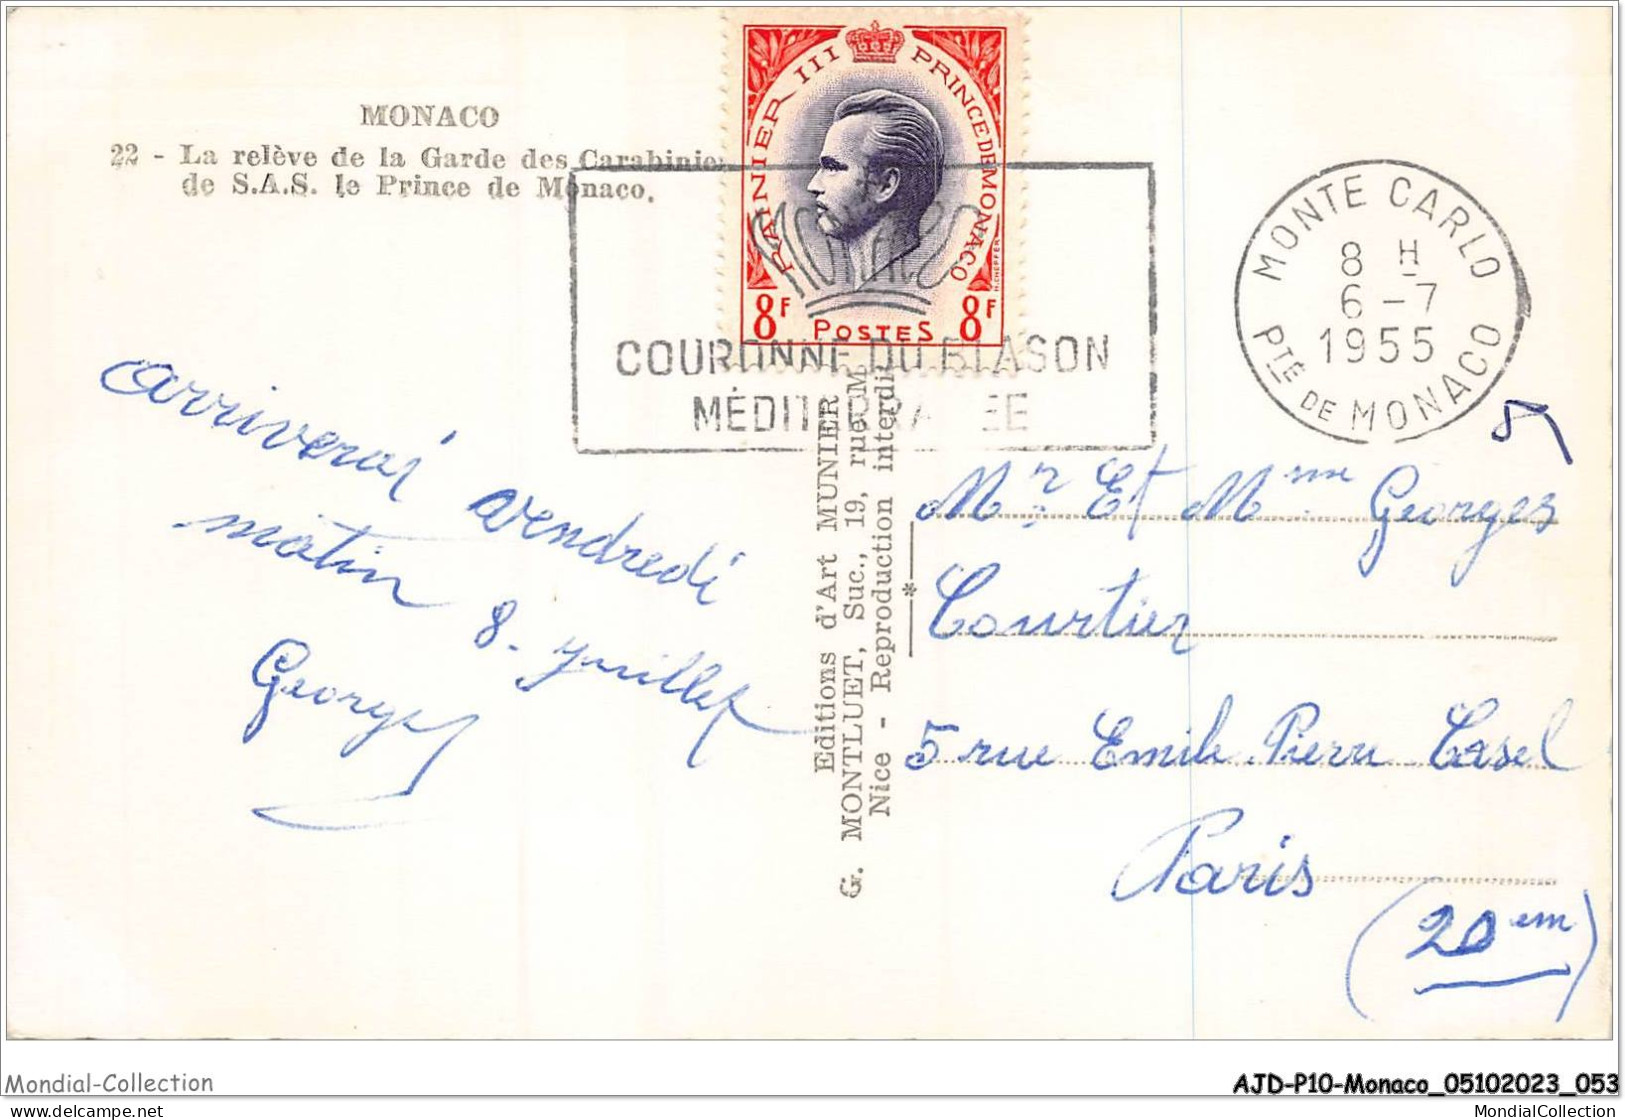 MONACO
22 - La relève de la Garde des Carabinie
de S.A.S. le Prince de Monaco.
RAINIER III PRINCE DE MONACO
H. CHEFFER
8F POSTES 8F
MONACO
COURONNE DU BLASON
MÉDITERRANÉE
MONTE CARLO
8 H
6 - 7
1955
PTÉ DE MONACO
arriverai vendredi
matin 8 juillet
Georges
Editions d'Art MUNIER
G. MONTLUET, Suc., 19, rue M
Nice - Reproduction interdi
Mr. Et Mme Georges
Courtier
5 rue Emile Pierre Casel
Paris
(20em)
Mondial-Collection
AJD-P10-Monaco_05102023_053
www.delcampe.net
MondialCollection